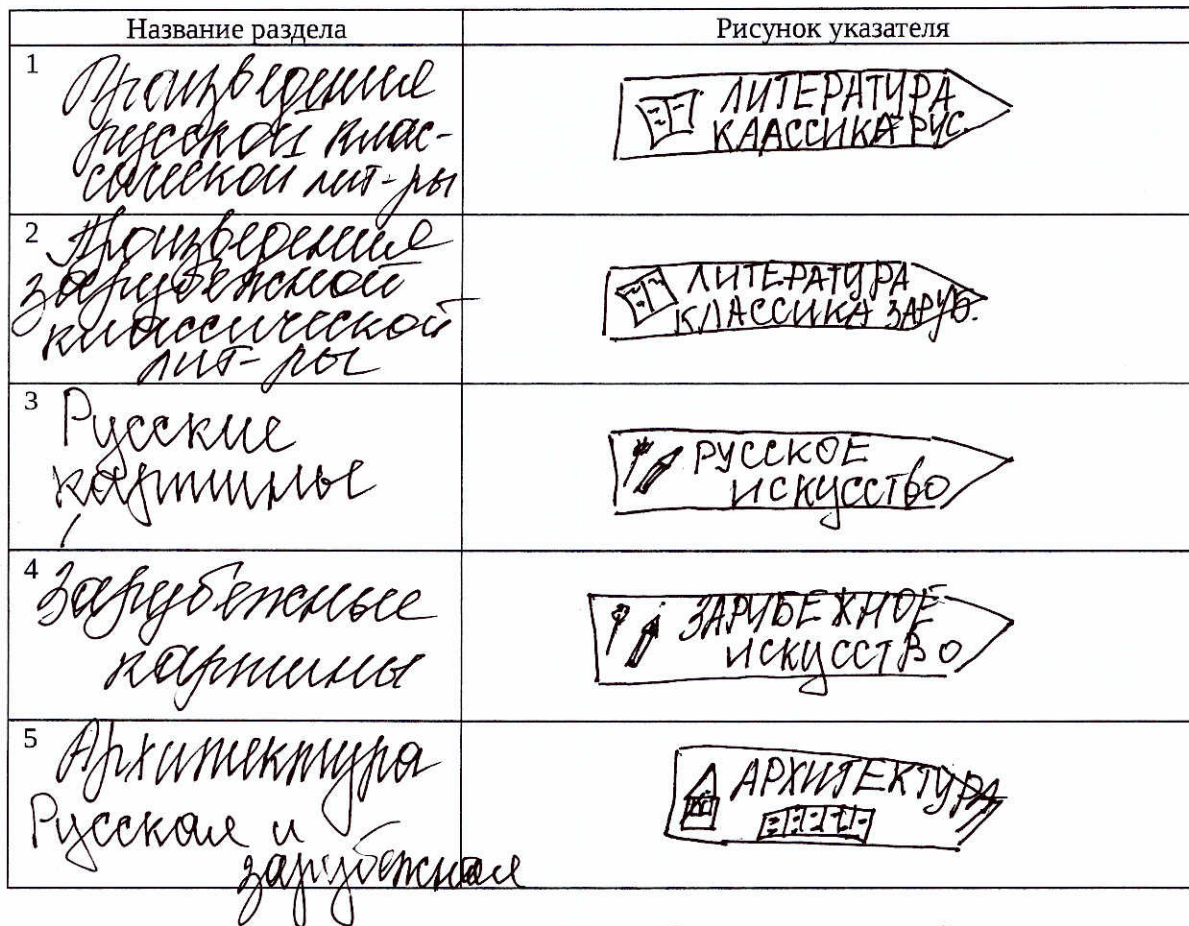 Название раздела
Рисунок указателя
1
Произведения
русской клас-
сической лит-ры
ЛИТЕРАТУРА
КЛАССИКА РУС.
2
Произведения
зарубежной
классической
лит-ры
ЛИТЕРАТУРА
КЛАССИКА ЗАРУБ.
3
Русские
картины
РУССКОЕ
ИСКУССТВО
4
Зарубежные
картины
ЗАРУБЕЖНОЕ
ИСКУССТВО
5
Архитектура
Русская и
зарубежная
АРХИТЕКТУРА